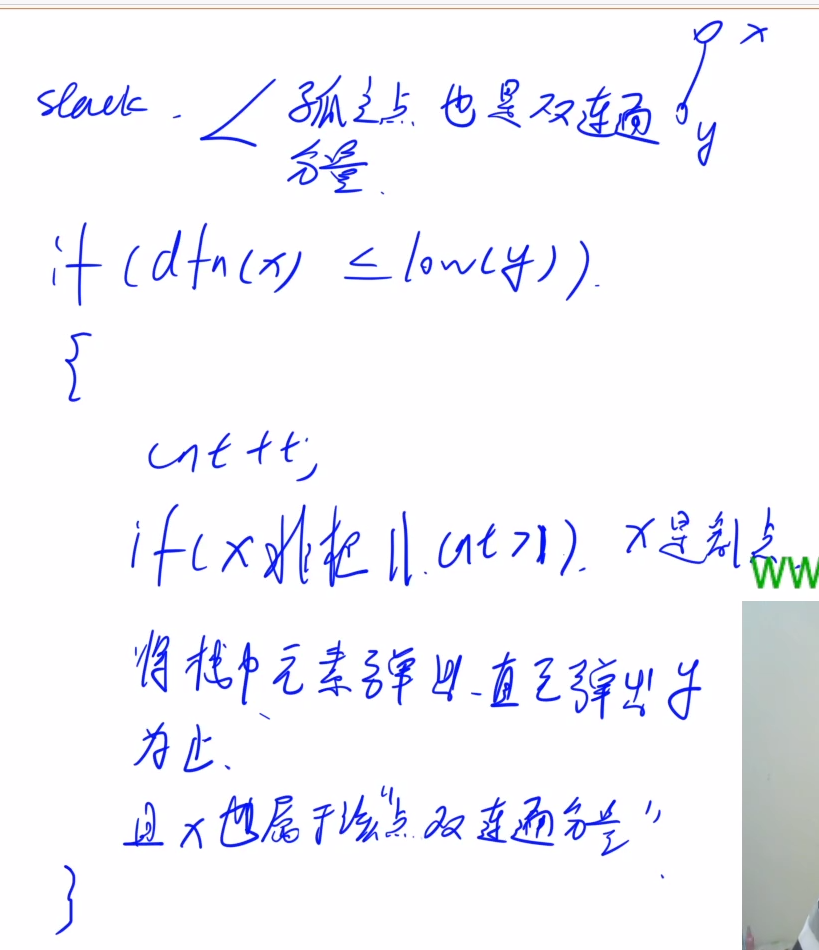 stack. 孤立点也是双连通 x
分量. y
if (dfn(x) ≤ low(y)).
{
cnt++;
if(x非根 || cnt>1). x是割点.
WW
将栈中元素弹出-直至弹出y
为止、
且x也属于该“点双连通分量”.
}